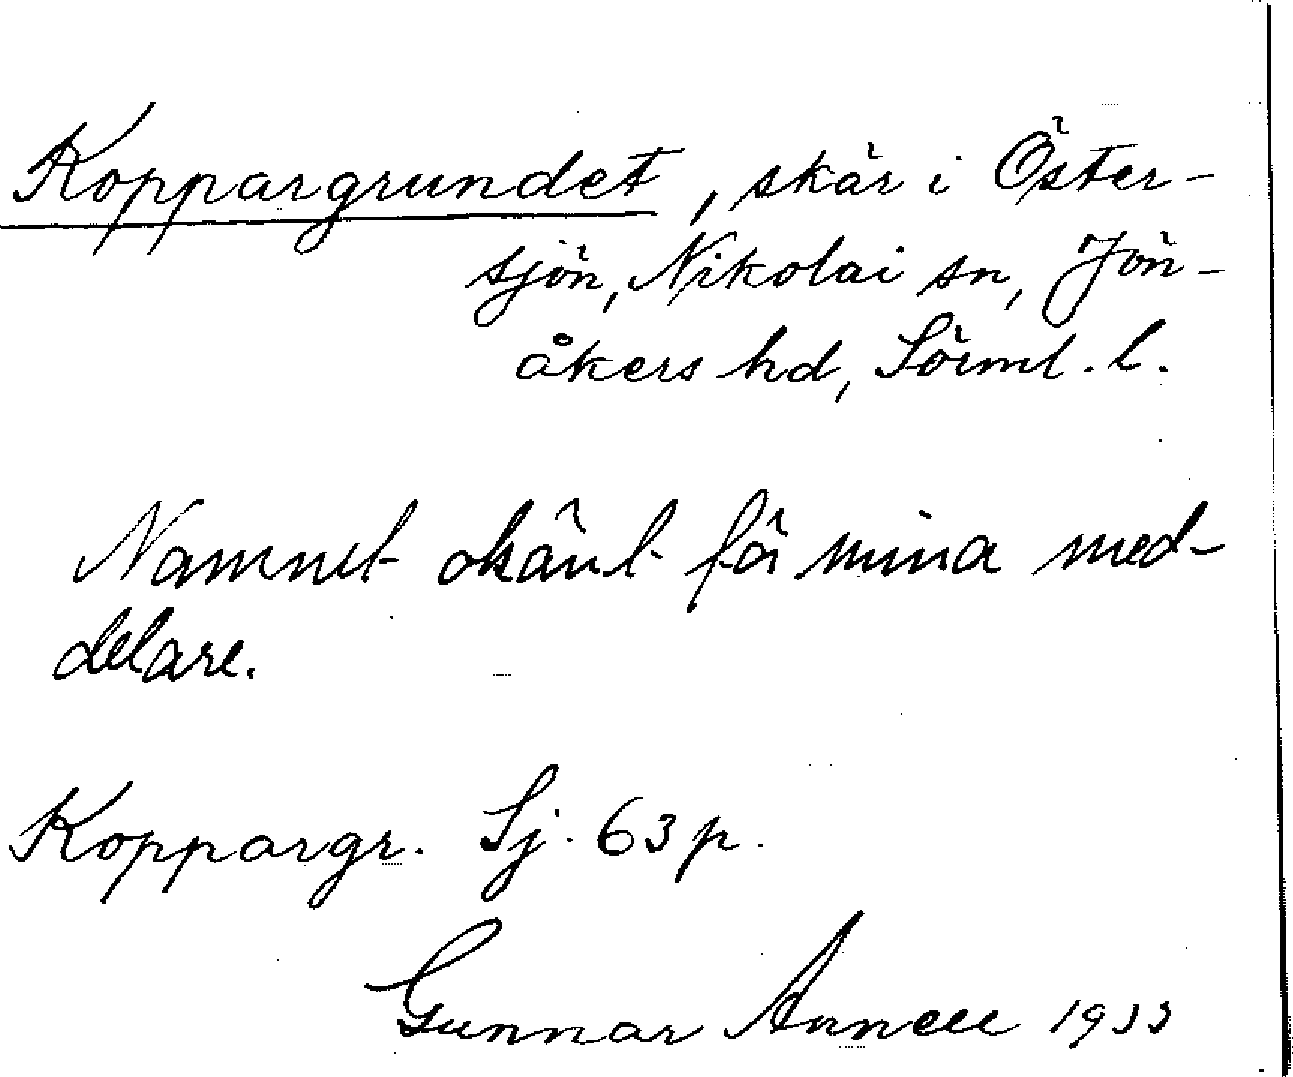 Koppargrundet, skär i Öster-
sjön, Nikolai sn, Jön-
åkers hd, Sörml. l.
Namnet okänt för mina med-
delare.
Koppargr. Sj. 63 p.
Gunnar Annell 1933